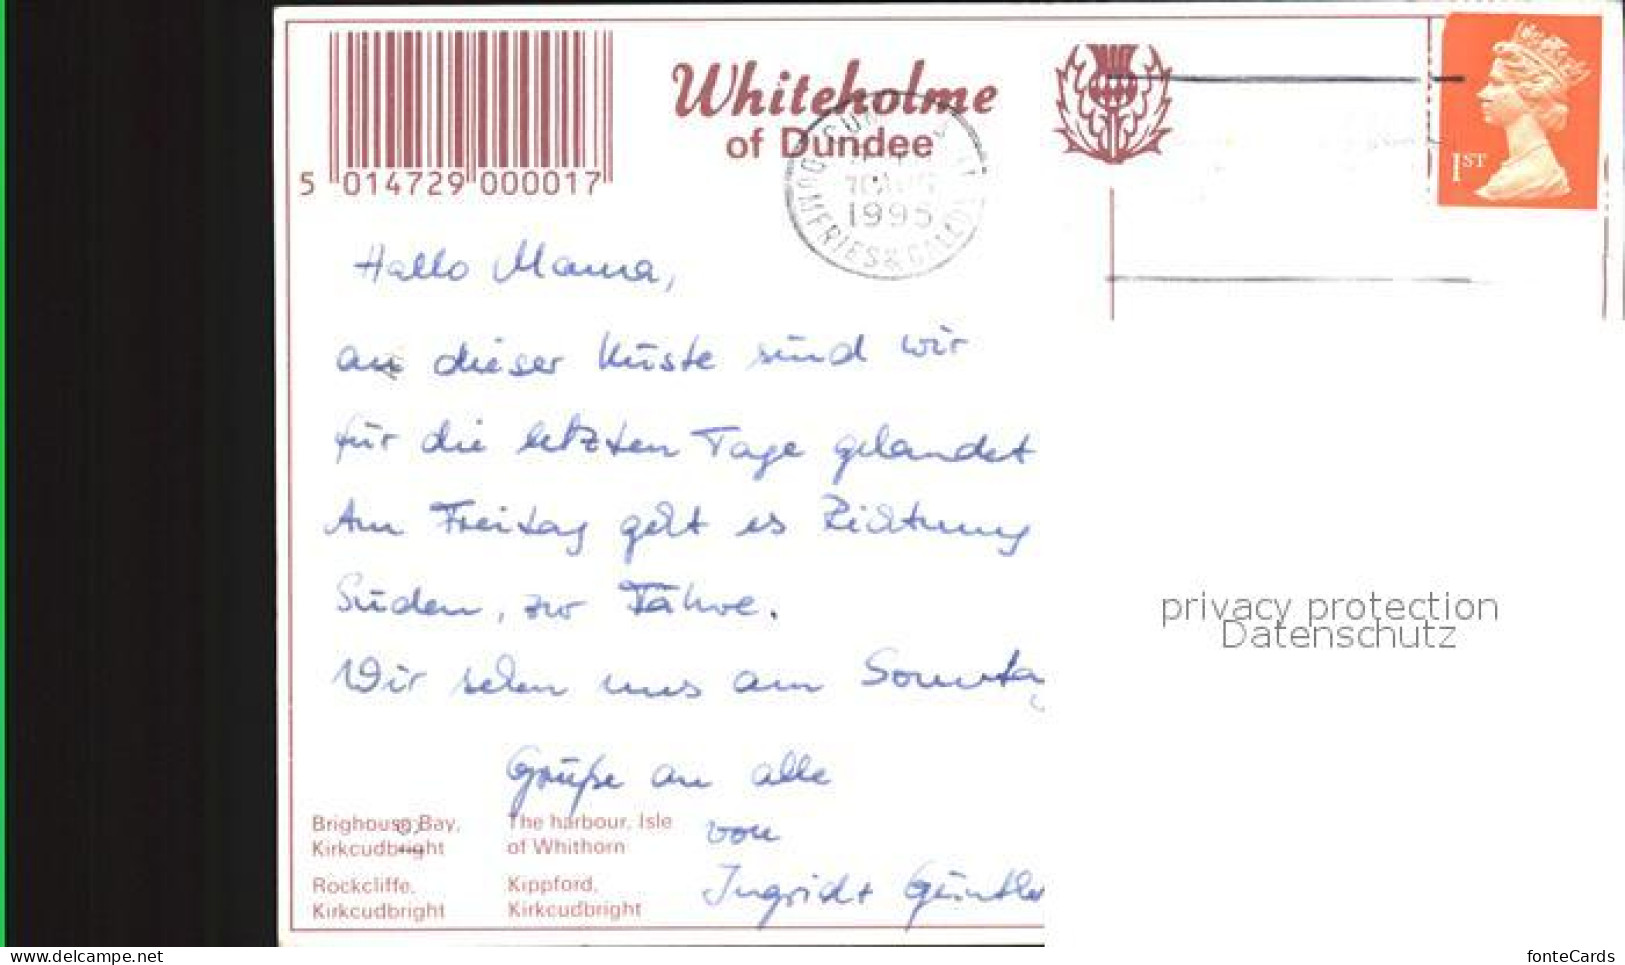 Whiteholme
of Dundee
1ST
5 014729 000017
DUMFRIES & GALLOWAY
1995
Hallo Mama,
an dieser Küste sind wir
für die letzten Tage gelandet
Am Freitag geht es Richtung
Süden, zur Fähre.
Wir sehen uns am Sonnta
Grüße an alle
von
Ingrid +
Brighouse Bay,
Kirkcudbright
The harbour, Isle
of Whithorn
Rockcliffe,
Kirkcudbright
Kippford,
Kirkcudbright
privacy protection
Datenschutz
www.delcampe.net
fonteCards